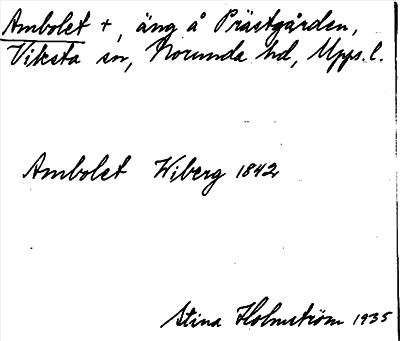 Ambolet +, äng å Prästgården,
Viksta sn, Norunda hd, Upps. l.
Ambolet Wiberg 1842
Stina Holmström 1935